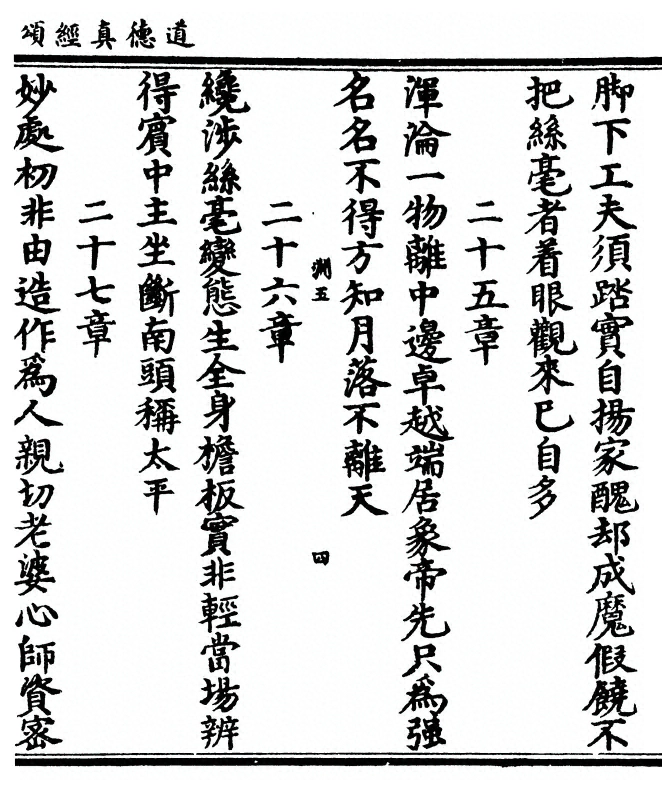 道德真經頌
脚下工夫須踏實自揚家醜却成魔假饒不
把絲毫者着眼觀來已自多
二十五章
渾淪一物離中邊卓越端居象帝先只爲强
名名不得方知月落不離天
淵五
四
二十六章
纔涉絲毫變態生全身檐板實非輕當場辨
得賓中主坐斷南頭稱太平
二十七章
妙處初非由造作爲人親切老婆心師資密